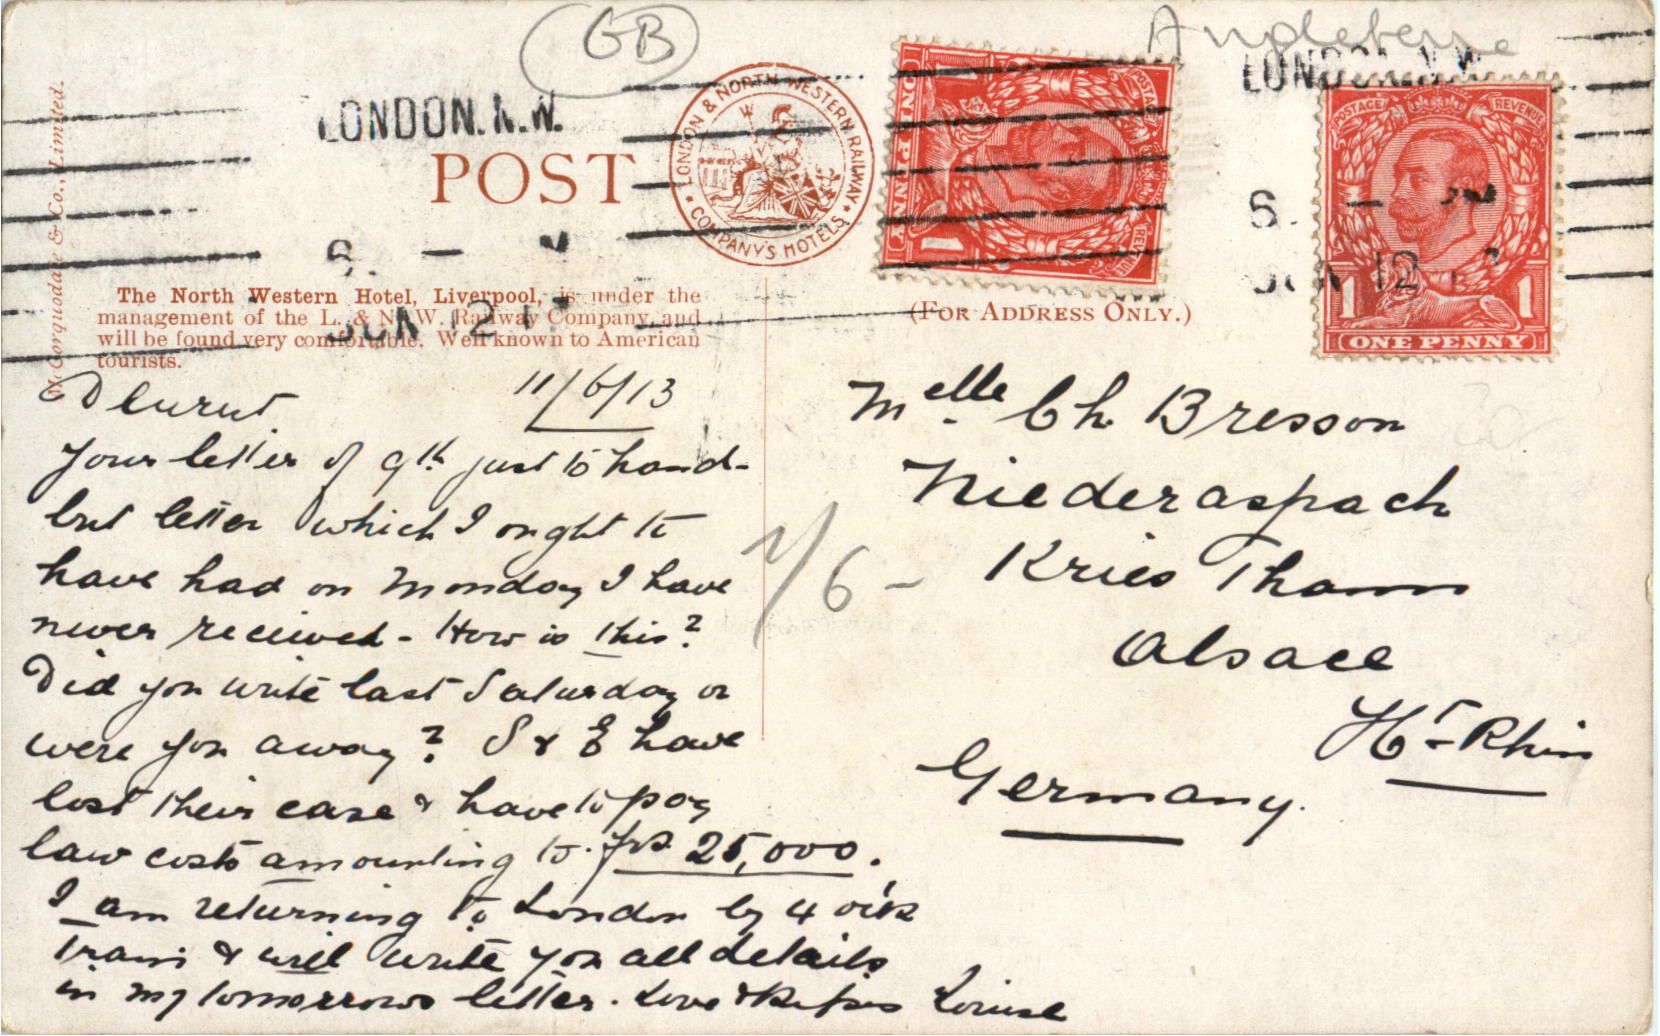 GB
Angleterre
McCorquodale & Co., Limited.
LONDON. N.W.
LONDON. N.W.
POST
LONDON & NORTH WESTERN RAILWAY
COMPANY'S HOTELS
POSTAGE REVENUE
ONE PENNY
1 1
POSTAGE REVENUE
1 1
ONE PENNY
JUN 12
JUN 12
The North Western Hotel, Liverpool, is under the
management of the L. & N. W. Railway Company, and
will be found very comfortable. Well known to American
tourists.
(FOR ADDRESS ONLY.)
11/6/13
Dearest
Your letter of 9th just to hand-
but letter which I ought to
have had on Monday I have
never received - How is this?
Did you write last Saturday or
were you away? S & E have
lost their case & have to pay
law costs amounting to frs 25,000.
I am returning to London by 4 o'ck
train & will write you all details
in my tomorrows letter. Love & Louise
Melle Ch Bresson
Niederaspach
Kries Thann
Alsace
Ht-Rhin
Germany.